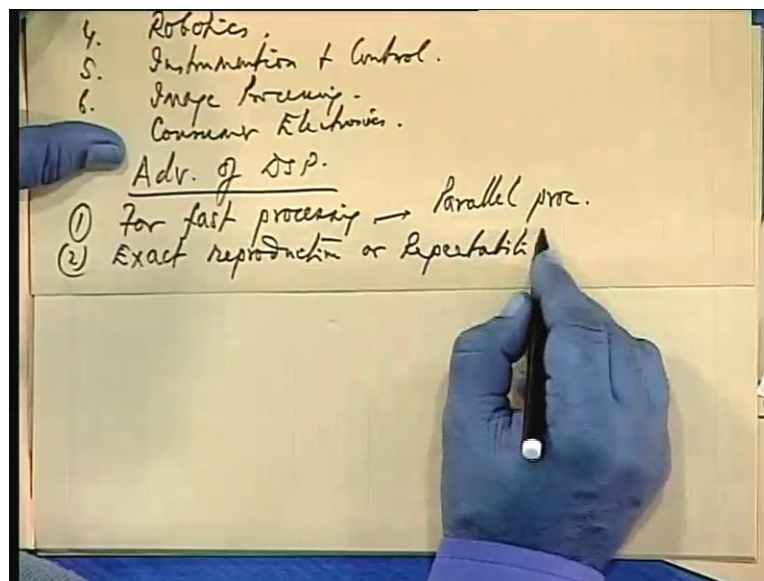 4. Robotics.
5. Instrumention & Control.
6. Image Processing.
Consumer Electronics.
Adv. of DSP.
① For fast processing → Parallel proc.
② Exact reproduction or Repeatabili